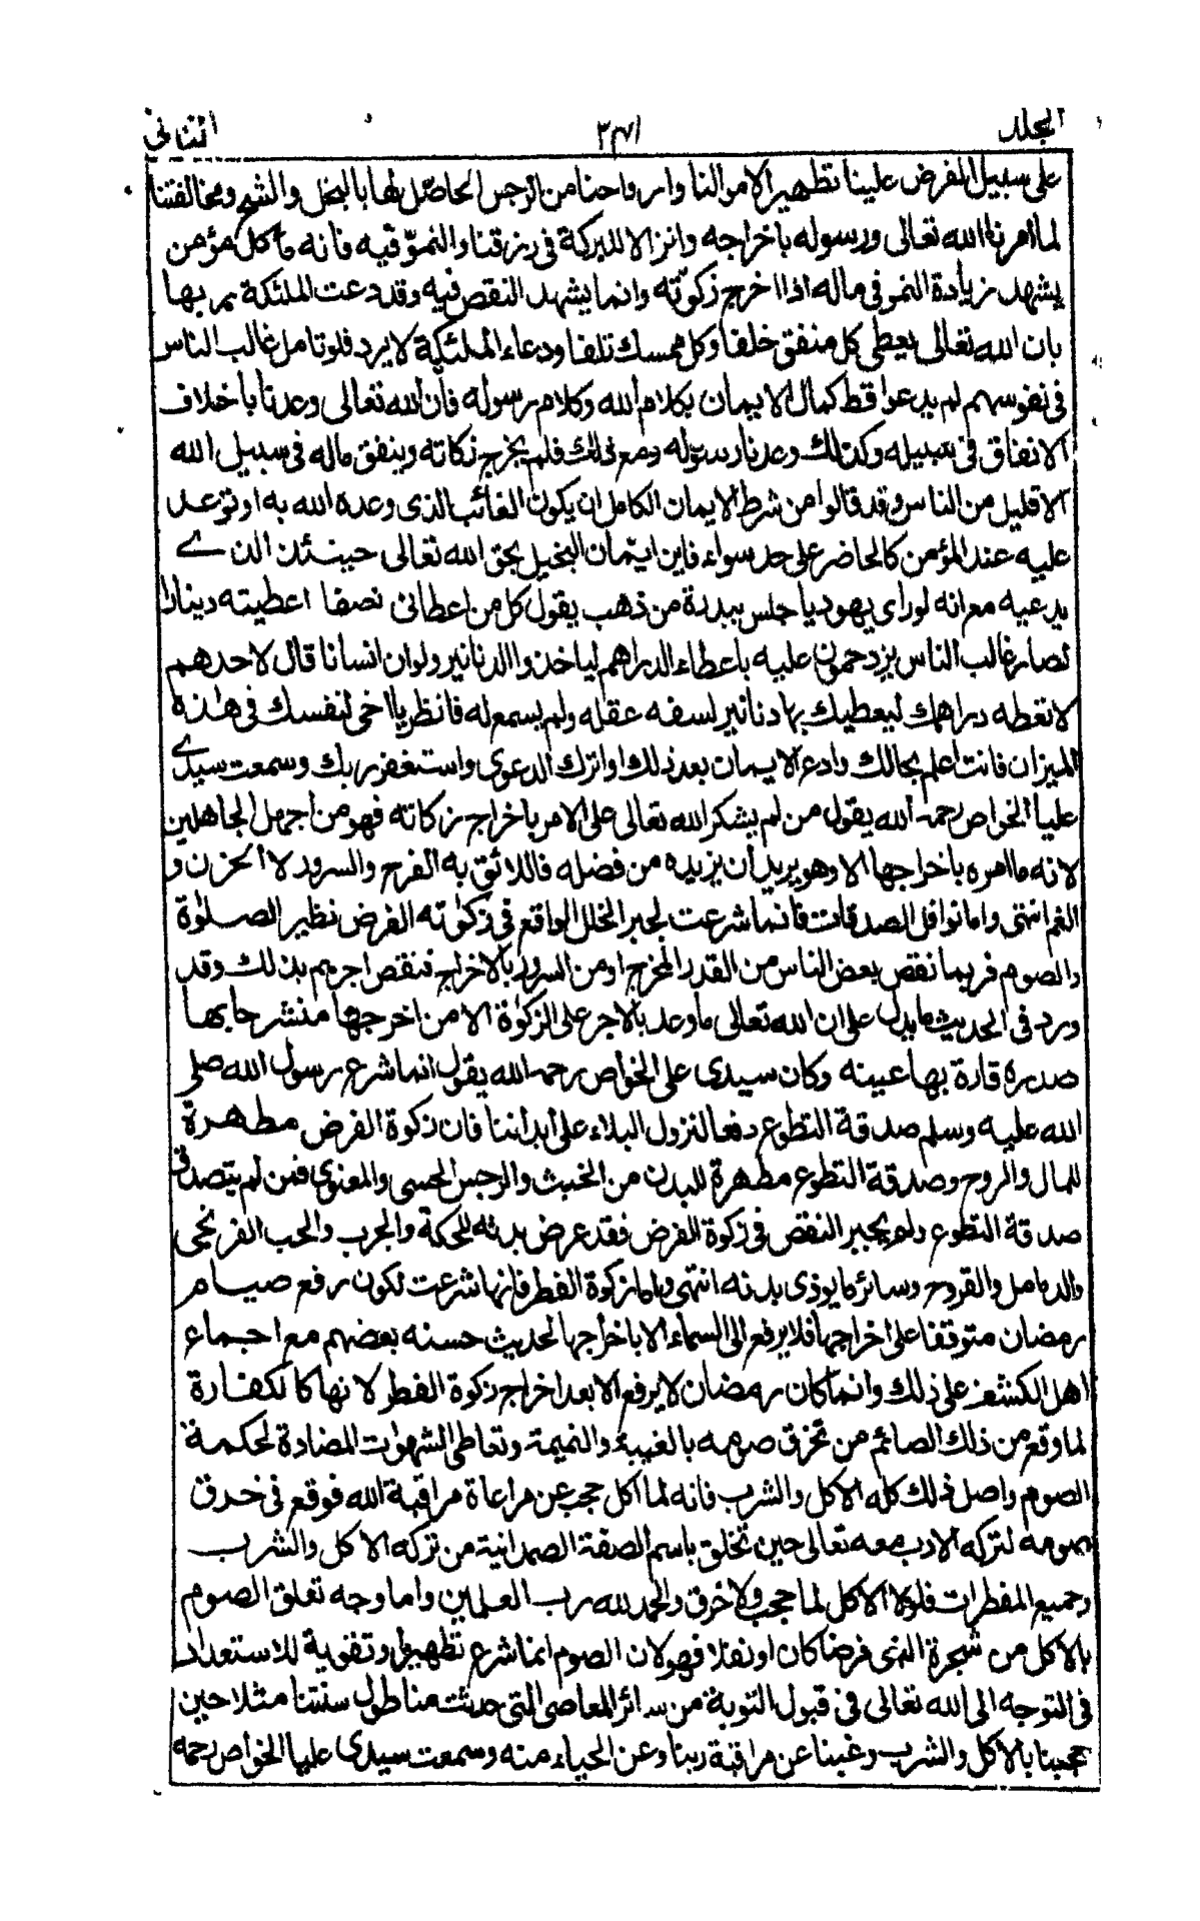 المجلد ٣٤١ الثانى
على سبيل الفرض علينا تطهيرا لاموالنا وارواحنا من الرجس الحاصل لها بالبخل والشح ومخالفتنا
لما امرنا الله تعالى ورسوله باخراجه وانزالا للبركة فى رزقنا والنمو فيه فانه ما كل مؤمن
يشهد زيادة النمو فى ماله اذا اخرج زكوته وانما يشهد النقص فيه وقد دعت الملئكة بها
بان الله تعالى يعطى كل منفق خلفا وكل ممسك تلفا ودعاء الملئكة لا يرد فلو تامل غالب الناس
فى نفوسهم لم يدعوا قط كمال الايمان بكلام الله وكلام رسوله فان الله تعالى وعدنا باخلاف
الانفاق فى سبيله وكذلك وعدنا رسوله ومع ذلك فلم يخرج زكاته وينفق ماله فى سبيل الله
الا قليل من الناس وقد قالوا من شرط الايمان الكامل ان يكون الغائب الذى وعده الله به او توعد
عليه عند المؤمن كالحاضر على حد سواء فاين ايمان البخيل بحق الله تعالى حينئذ الذى
يدعيه مع انه لو راى يهوديا جلس ببدرة من ذهب يقول كل من اعطانى نصفا اعطيته دينارا
لصار غالب الناس يزدحمون عليه باعطاء الدراهم لياخذوا الدنانير ولو ان انسانا قال لاحدهم
لا تعطه دراهمك ليعطيك بها دنانير لسفه عقله ولم يسمع له فانظر يا اخى لنفسك فى هذه
الميزان فانت اعلم بحالك وادع الايمان بعد ذلك او اترك الدعوى واستغفر ربك وسمعت سيدى
عليا الخواص رحمه الله يقول من لم يشكر الله تعالى على الامر باخراج زكاته فهو من اجهل الجاهلين
لانه ما امره باخراجها الا وهو يريد ان يزيده من فضله فاللائق به الفرح والسرور لا الحزن و
الغم انتهى واما نوافل الصدقات فانما شرعت لجبر الخلل الواقع فى زكوته الفرض نظير الصلوة
والصوم فربما نقص بعض الناس من القدر المخرج او من السرور بالاخراج فنقص اجرهم بذلك وقد
ورد فى الحديث ما يدل على ان الله تعالى ما وعد بالاجر على الزكوة الا من اخرجها منشرحا بها
صدره قارة بها عينه وكان سيدى على الخواص رحمه الله يقول انما شرع رسول الله صلى
الله عليه وسلم صدقة التطوع دفعا لنزول البلاء على ابداننا فان زكوة الفرض مطهرة
للمال والروح وصدقة التطوع مطهرة للبدن من الخبث والرجس الحسى والمعنوى فمن لم يتصدق
صدقة التطوع ولم يجبر النقص فى زكوة الفرض فقد عرض بدنه للحكة والجرب والحب الفرنجى
والدمامل والقروح وسائر ما يوذى بدنه انتهى واما زكوة الفطر فانها شرعت لكون رفع صيام
رمضان متوقفا على اخراجها فلا يرفع الى السماء الا باخراجها لحديث حسنه بعضهم مع اجماع
اهل الكشف على ذلك وانما كان رمضان لا يرفع الا بعد اخراج زكوة الفطر لانها كالكفارة
لما وقع من ذلك الصائم من تخرق صومه بالغيبة والنميمة وتعاطى الشهوات المضادة لحكمة
الصوم واصل ذلك كله الاكل والشرب فانه لما اكل حجب عن مراعاة مراقبة الله فوقع فى خرق
صومه لتركه الادب معه تعالى حين تخلق باسم الصفة الصمدانية من تركه الاكل والشرب
وجميع المفطرات فلولا الاكل لما حجب ولا خرق والحمد لله رب العلمين واما وجه تعلق الصوم
بالاكل من شجرة النهى فرضا كان او نفلا فهو لان الصوم انما شرع تطهيرا وتقوية للاستعداد
فى التوجه الى الله تعالى فى قبول التوبة من سائر المعاصى التى حدثت منا طول سنتنا مثلا حين
حجبنا بالاكل والشرب وغبنا عن مراقبة ربنا وعن الحياء منه وسمعت سيدى عليا الخواص رحمه